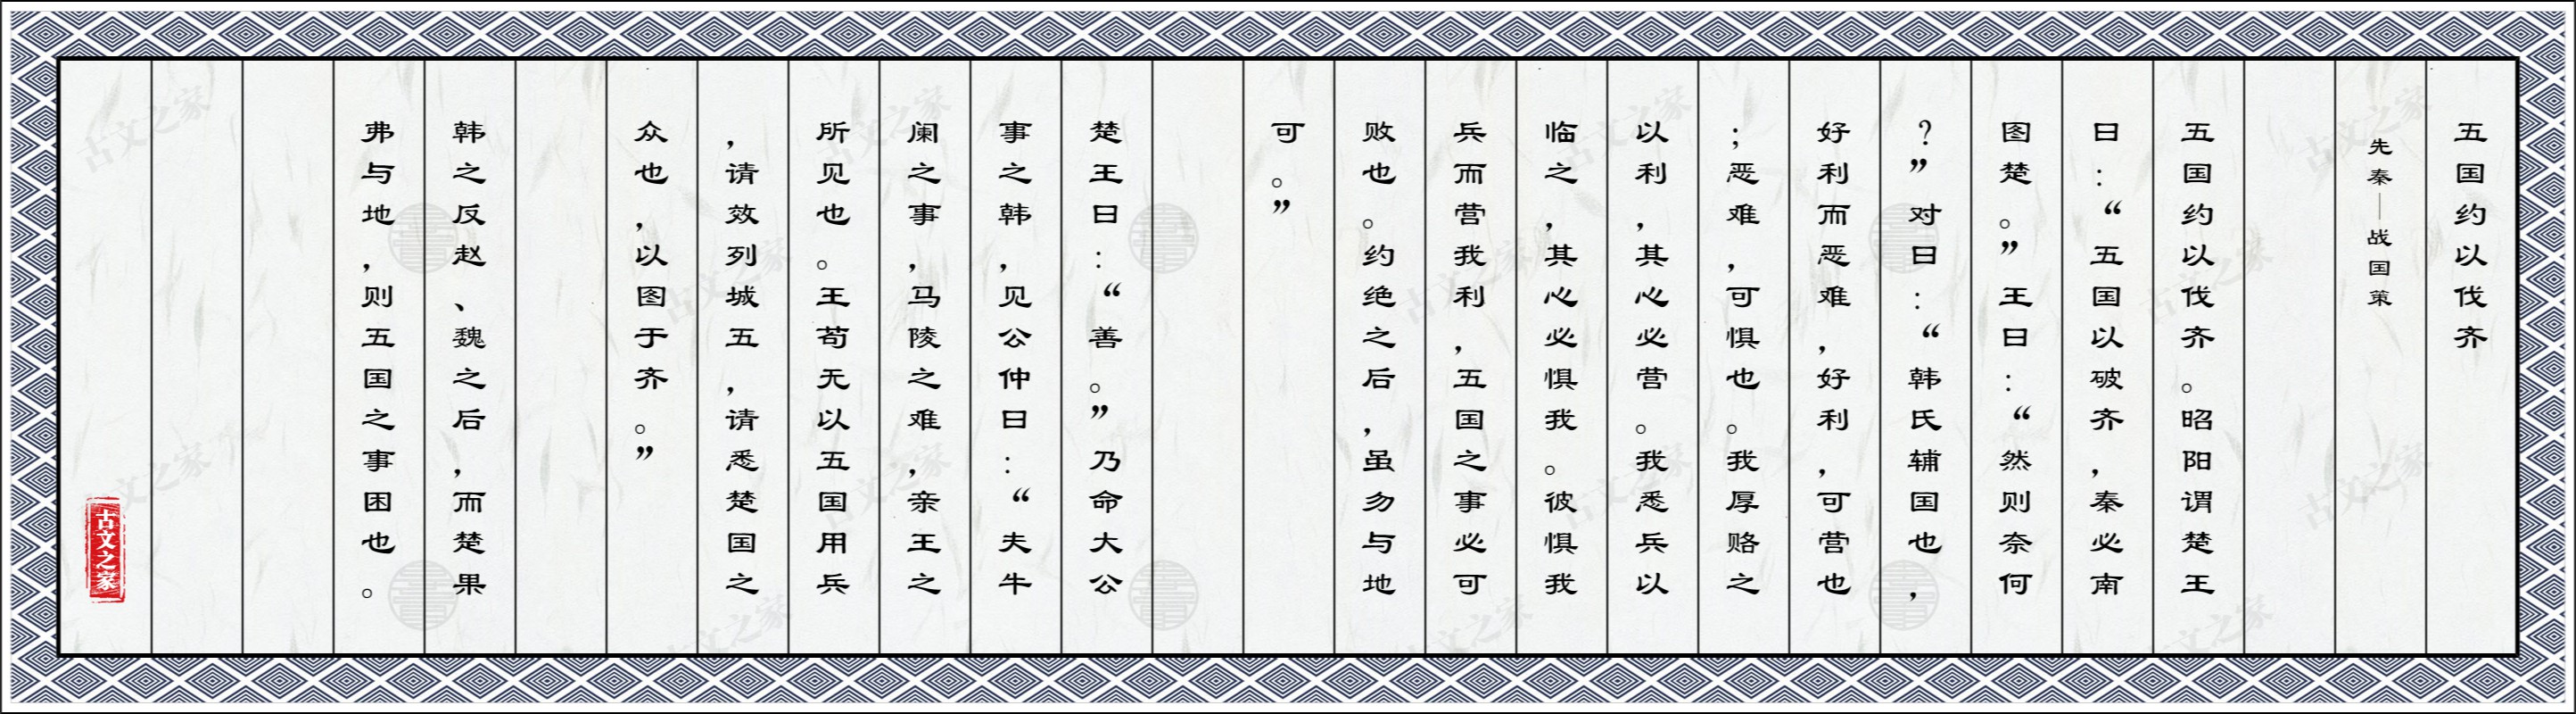 五国约以伐齐
先秦—战国策
五国约以伐齐。昭阳谓楚王
曰：“五国以破齐，秦必南
图楚。”王曰：“然则奈何
？”对曰：“韩氏辅国也，
好利而恶难，好利，可营也
；恶难，可惧也。我厚赂之
以利，其心必营。我悉兵以
临之，其心必惧我。彼惧我
兵而营我利，五国之事必可
败也。约绝之后，虽勿与地
可。”
楚王曰：“善。”乃命大公
事之韩，见公仲曰：“夫牛
阑之事，马陵之难，亲王之
所见也。王苟无以五国用兵
，请效列城五，请悉楚国之
众也，以图于齐。”
韩之反赵、魏之后，而楚果
弗与地，则五国之事困也。
古文之家